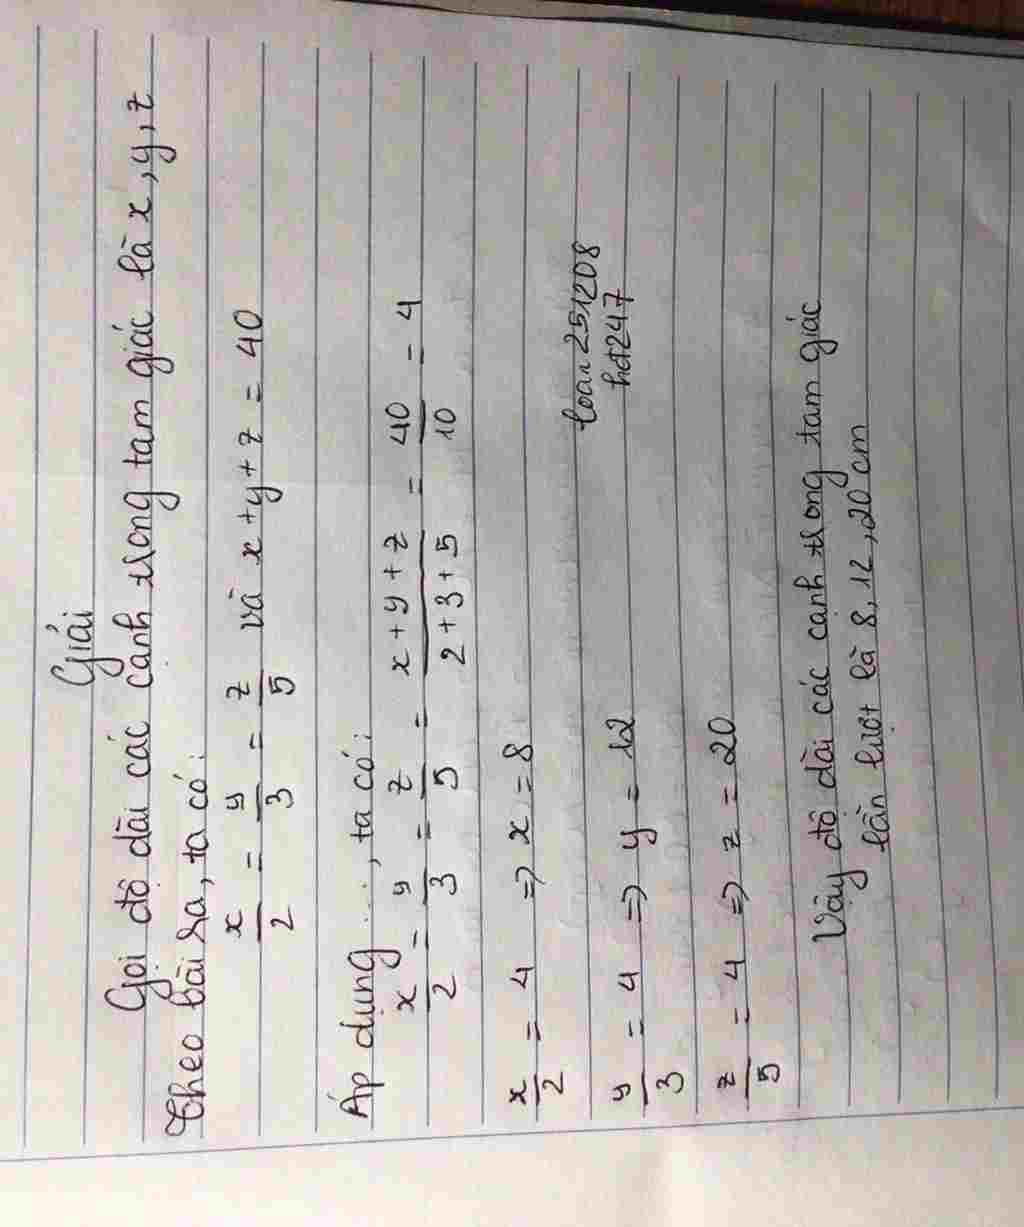 Giải
Gọi độ dài các cạnh trong tam giác là x, y, z
Theo bài ra, ta có:
x/2 = y/3 = z/5 và x + y + z = 40
Áp dụng ..., ta có:
x/2 = y/3 = z/5 = (x + y + z)/(2 + 3 + 5) = 40/10 = 4
x/2 = 4 => x = 8
loan251208
hd247
y/3 = 4 => y = 12
z/5 = 4 => z = 20
Vậy độ dài các cạnh trong tam giác
lần lượt là 8, 12, 20 cm